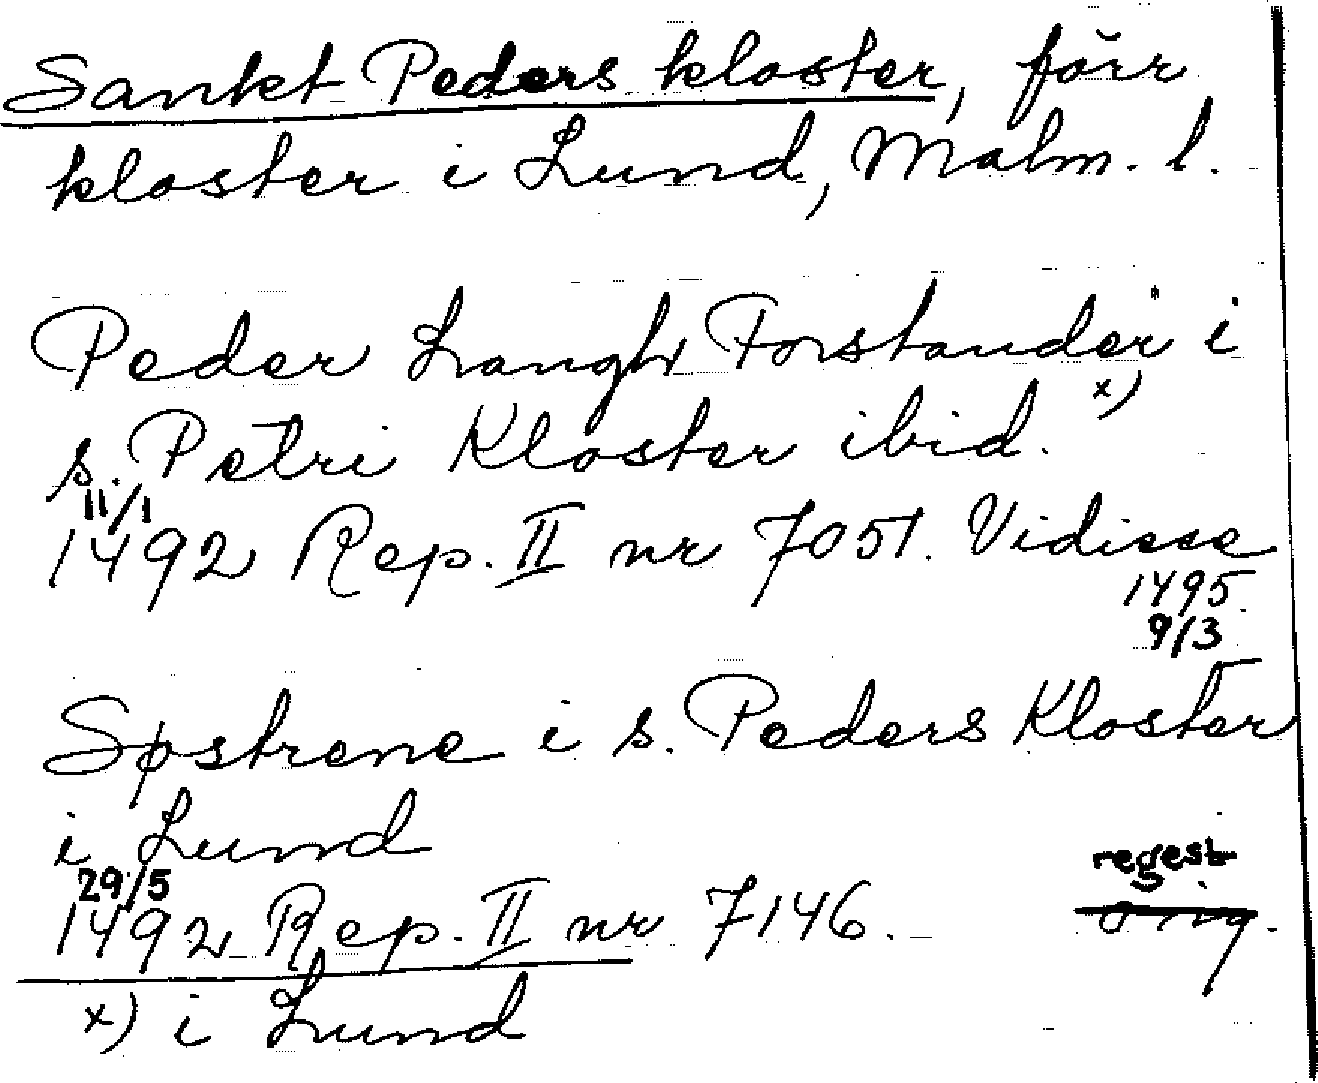 Sankt Peders kloster, förr
kloster i Lund, Malm. l.
Peder Langh Forstander i
s. Petri Kloster ibid. x)
11/1
1492 Rep. II nr 7051. Vidisse
1495
9/3
Søstrene i s. Peders Kloster
i Lund
29/5
regest
1492 Rep. II nr 7146. orig.
x) i Lund